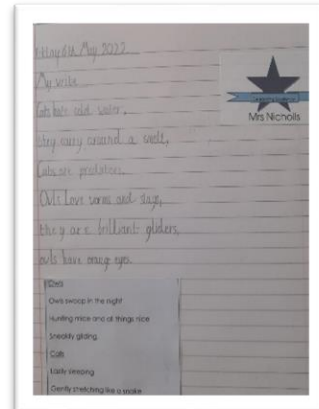 May 2022
My write
Cats hate cold water,
they carry around a smell,
Cats are predators.
Owls Love worms and slugs,
they are brilliant gliders,
owls have orange eyes.
Mrs Nicholls
Owls
Owls swoop in the night
Hunting mice and all things nice
Sneakily gliding.
Cats
Lazily sleeping
Gently stretching like a snake